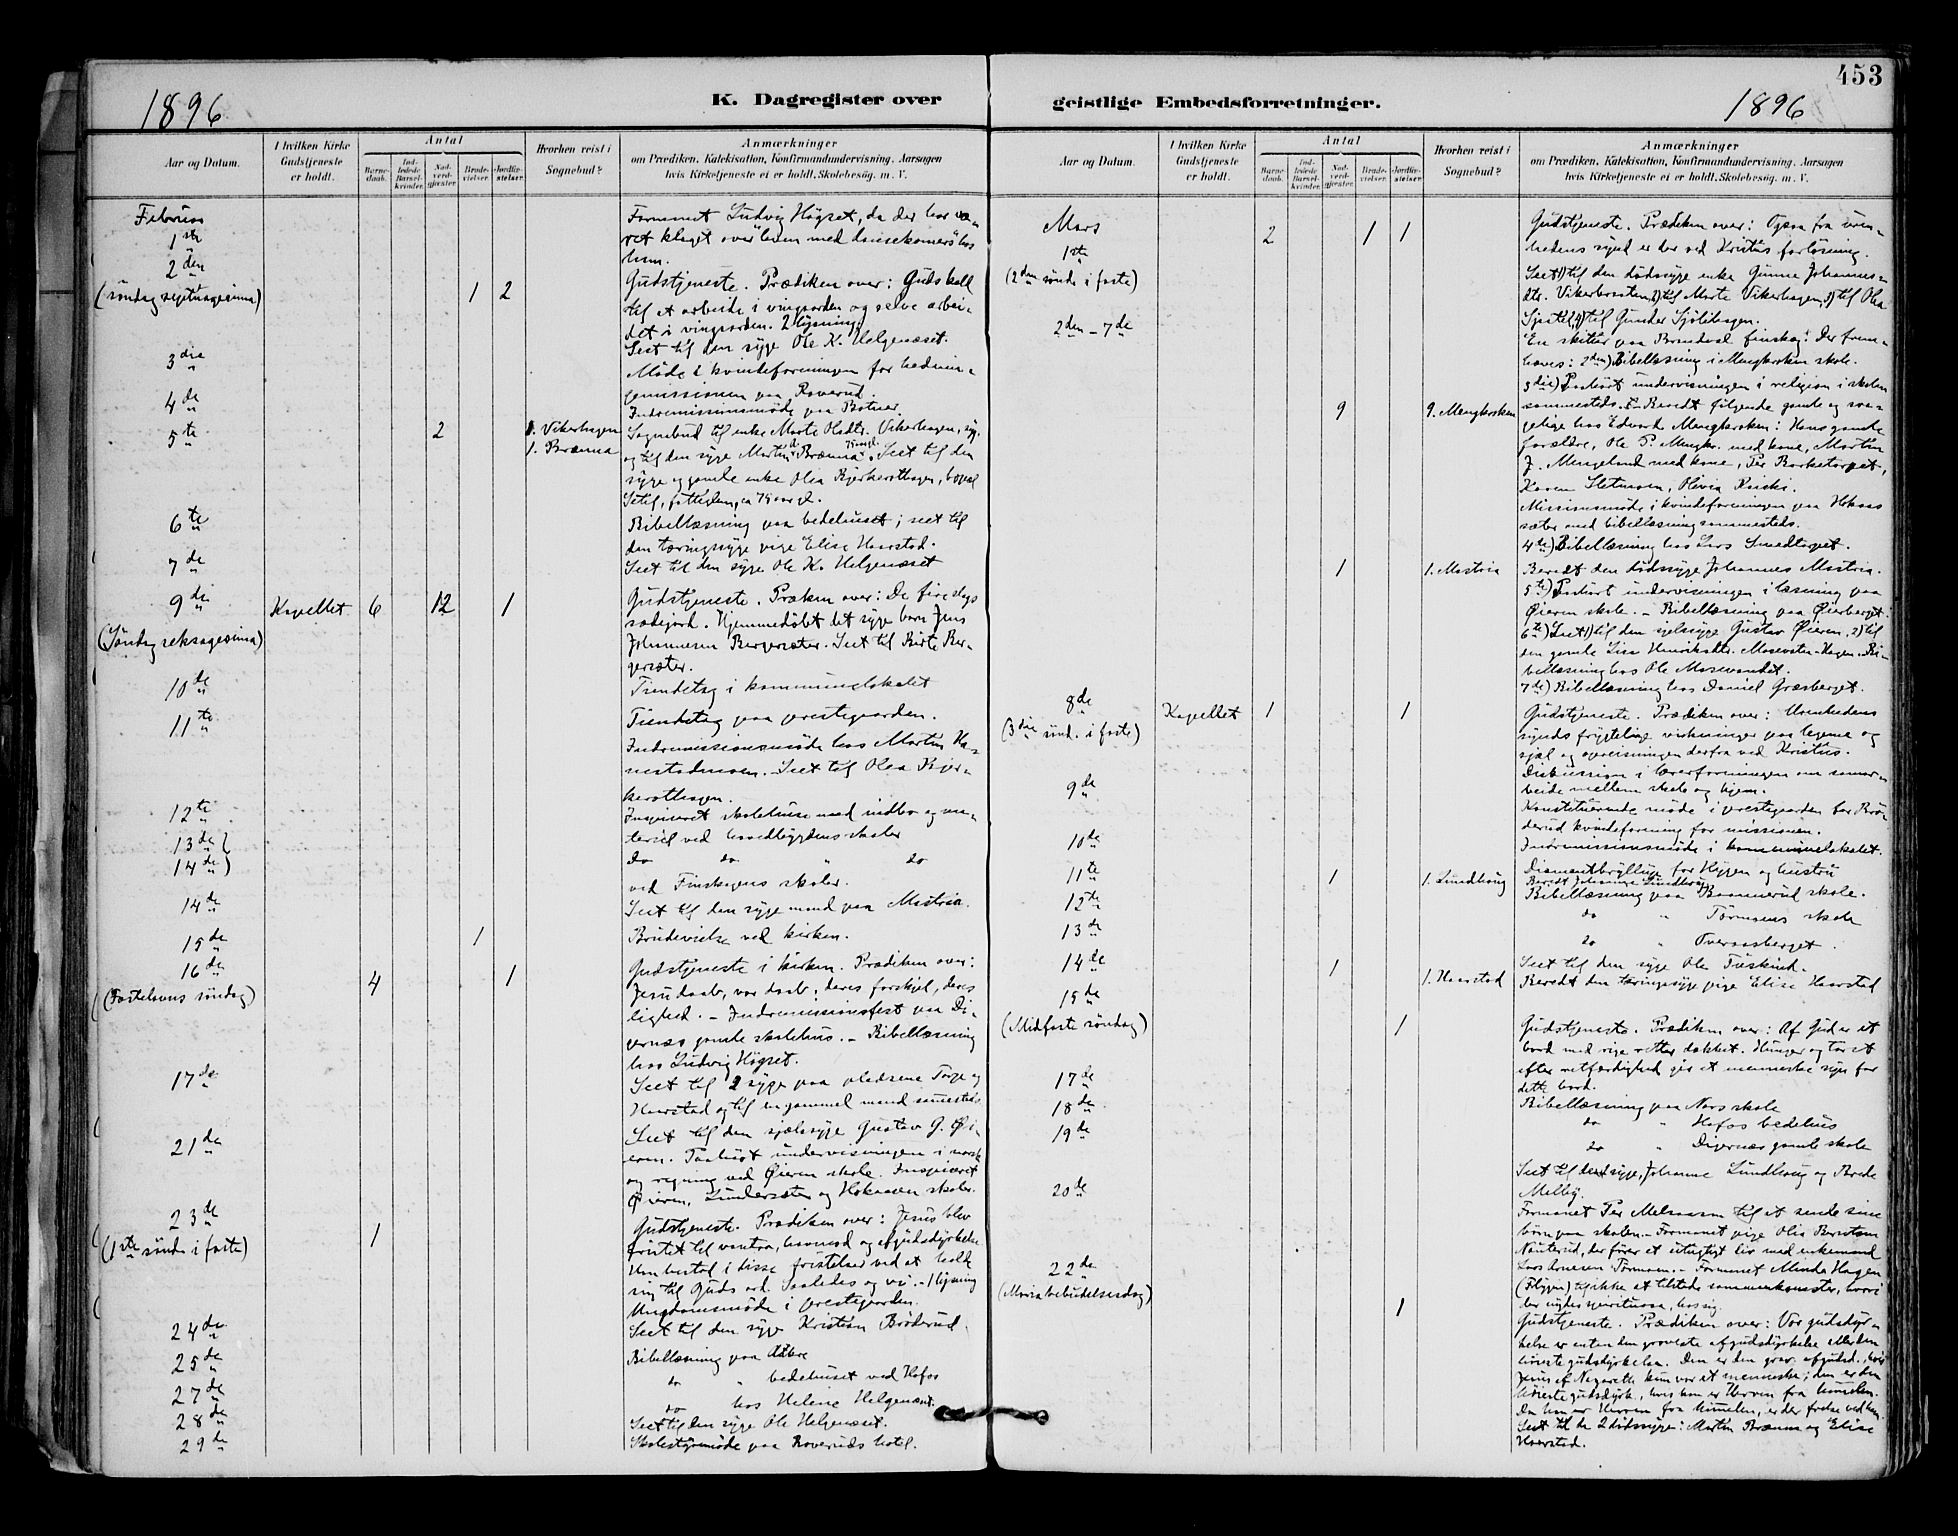 1896
K. Dagregister over
Aar og Datum.
I hvilken Kirke Gudstjeneste er holdt.
Antal
Barnedaab.
Indledede Barselkvinder.
Nadverdgjæster.
Brudevielser.
Jordfæstelser.
Hvorhen reist i Sognebud?
Anmærkninger
om Prædiken, Katekisation, Konfirmandundervisning, Aarsagen
hvis Kirketjeneste ei er holdt, Skolebesøg. m. V.
Februar
1ste
Formanet Ludvig Högset, da der har væ-
ret klaget over leven med dansekomers hos
ham.
2den
(söndag septuagesima)
1 2
Gudstjeneste. Prædiken over: Guds kall
til at arbeide i vingaarden og selve arbei-
det i vingaarden. 2 lysning.
Seet til den syge Ole K. Helgenæset.
3die
Möde i kvindeforeningen for hednin-
gemissionen paa Roverud.
4de
Indremissionsmöde paa Botner.
5te
2
1. Vikerhagen
1. Brænna
Sognebud til enke Marte Olsdtr. Vikerhagen, syg.
og til den syge Martin Brænna. Seet til den
syge og gamle enke Olea Bjerkerothagen,
Setil, fattiglem, ca 75 aar gl.
6te
Bibellæsning paa bedehuset; seet til
den tæringssyge pige Elise Haarstad.
7de
Seet til den syge Ole K. Helgenæset
9de
(Söndag seksagesima)
Kapellet 6 12 1
Gudstjeneste. Præken over: De fire slags
sædejord. Hjemmedöbt det syge barn Jens
Johannesen Bergersæter. Seet til Birte Ber-
gersæter.
10de
Tiendetag i kommunelokalet
11te
Tiendetag paa prestegaarden.
Indremissionsmöde hos Martin Ha-
nestadmoen. Seet til Olea Bjer-
kerothagen.
12te
13de
14de
Inspiceret skolehuse med indbo og ma-
teriel ved hovedbygdens skoler
do do " do
ved Finskogens skoler.
14de
Seet til den syge mand paa Mastria.
15de
1
Brudevielse ved kirken.
16de
(Fastelavns söndag)
4 1
Gudstjeneste i kirken. Prædiken over:
Jesu daab, vor daab, deres forskjel, deres
lighed. – Indremissionsfest paa Di-
gernæs gamle skolehus. – Bibellæsning
hos Ludvig Högset.
17de
Seet til 2 syge paa pladsene Torge og
Haarstad og til en gammel mand sammesteds
21de
Seet til den sjælssyge Gustav G. Øi-
eren. Paahört undervisningen i norsk
og regning ved Øieren skole. Inspiceret
Øieren, Lundersæter og Hokaasen skoler.
23de
(1ste sönde i faste)
1
Gudstjeneste. Prædiken over: Jesus blev
fristet til vantro, hovmod og afgudsdyrkelse
Han bestod i disse fristelser ved at holde
sig til Guds ord. Saaledes og vi. – 1 lysning
Ungdomsmöde i prestegaarden.
24de
Seet til den syge Kristian Bröderud.
25de
Bibellæsning paa Aabre
27de
do " bedehuset ved Hofos
28de
do hos Helene Helgenæset.
Seet til den syge Ole Helgenæset.
29de
Skolestyrmöde paa Roveruds hotel.
453
geistlige Embedsforretninger.
1896
Aar og Datum.
I hvilken Kirke Gudstjeneste er holdt.
Antal
Barnedaab.
Indledede Barselkvinder.
Nadverdgjæster.
Brudevielser.
Jordfæstelser.
Hvorhen reist i Sognebud?
Anmærkninger
om Prædiken, Katekisation, Konfirmandundervisning, Aarsagen
hvis Kirketjeneste ei er holdt, Skolebesøg. m. V.
Mars
1ste
(2den sönde i faste)
2 1 1
Gudstjeneste. Prædiken over: Ogsaa fra uren-
hedens synd er der ved Kristus forlösning.
Seet 1) til den dödssyge enke Gunnor Johannes-
dtr. Vikerbraaten, 2) til Marte Vikerhagen, 3) til Olea
Sjustil, 4) til Gunder Sjölihagen.
2den – 7de
En skitur paa Brandval finskog: Der frem-
hæves: 2den) Bibellæsning i Mengkroken skole.
3die) Paahört undervisningen i religion i skolen
9
9. Mengkroken
sammesteds. – Beredt fölgende gamle og sva-
gelige hos Edvard Mengkroken: Hans gamle
forældre, Ole P. Mengkr. med kone, Martin
J. Mengeland med kone, Per Barketorpet,
Karen Sletmoen, Olivia
Missionsmöde i kvindeforeningen paa Hokaas-
sæter med bibellæsning sammesteds.
4de) Bibellæsning hos Lars Smedtorpet.
1
1. Mastria
Beredt den dödssyge Johannes Mastria.
5te) Paahört undervisningen i læsning paa
Øieren skole. – Bibellæsning paa Øierberget.
6te) Seet 1) til den sjelssyge Gustav Øieren, 2) til
den gamle Lisa Henriksdtr. Masevatn-Hagen. Bi-
bellæsning hos Ole Masevandet.
7de) Bibellæsning hos Daniel Græsberget.
8de
(3die sönd. i faste)
Kapellet 1 1
Gudstjeneste. Prædiken over: Urenhedens
synds frygtelige virkninger paa legeme og
sjæl og opreisningen derfra ved Kristus.
Diskussion i lærerforeningen om samar-
beide mellem skole og hjem.
9de
Konstituerende möde i prestegaarden for Brö-
derud kvindeforening for missionen.
10de
Indremissionsmöde i kommunelokalet.
11te
1
1. Lundhaug
Diamantbryllup for Hyggen og hustru
Beredt Johanne Lundhaug
12te
Bibellæsning paa Baanerud skole.
13de
do " Tørmoens skole
14de
do " Tveraasberget.
1
1. Haarstad
Seet til den syge Ole Tuskind.
15de
Beredt den tæringssyge pige Elise Haarstad
(Midfaste söndag)
1
Gudstjeneste. Prædiken over: Af Gud er et
bord med rige retter dækket. Hunger og törst
efter retfærdighed gir et menneske syn for
dette bord.
17de
Bibellæsning paa Nors skole
18de
do " Hofos bedehus
19de
do " Digernæs gamle skole
20de
Seet til de syge, Johanne Lundhaug og Brede
Melby.
Formanet Per Melsaasen til at sende sine
börn paa skolen. – Formanet pige Olia Berntsen
Nauterud, der förer et utugtigt liv med enkemand
Lars Tørmoen. – Formanet Minda Hagen
(Flygen) til ikke at tilstede sammenkomster, hvori
der nydes spirituosa, hos sig.
22de
(Mariæ bebudelsesdag)
1
Gudstjeneste. Prædiken over: Vor gudsdyr-
kelse er enten den groveste afgudsdyrkelse eller den
höieste gudsdyrkelse. Den er den grov. afgudsd., hvis
Jesus af Nazareth kun var et menneske; den er den
höieste gudsdyrk., hvis han er Herren fra himelen.
Da han er Herren fra himelen, er der frelse ved ham.
Seet til de 2 dödssyge: Martin Brænna og Elise
Haarstad.